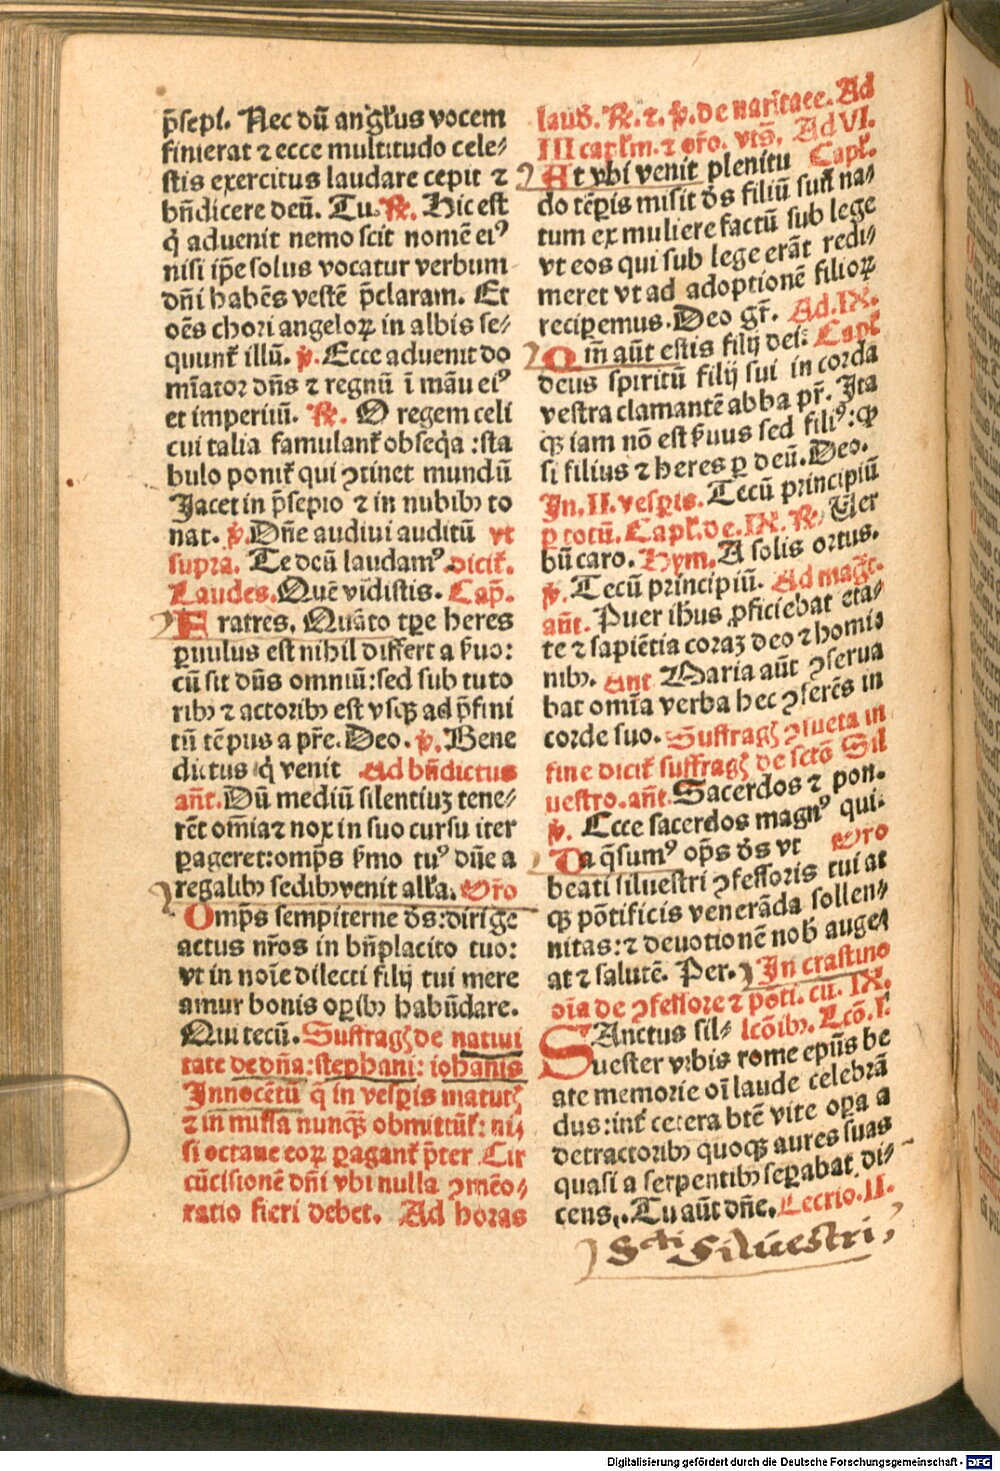 p̄sepi. Nec dū angl̃us vocem
finierat ⁊ ecce multitudo cele⸗
stis exercitus laudare cepit ⁊
bn̄dicere deū. Tu. ℟. Hic est
q̇ aduenit nemo scit nomē eiꝰ
nisi ip̄e solus vocatur verbum
dn̄i habēs vestē p̄claram. Et
oēs chori angeloꝝ in albis se⸗
quunt̄ illū. ℣. Ecce aduenit do
mīator dn̄s ⁊ regnū ī māu eiꝰ
et imperiū. ℟. O regem celi
cui talia famulant̄ obseq̄a : sta
bulo ponit̄ qui ꝯtinet mundū
Jacet in p̄sepio ⁊ in nubibꝫ to
nat. ℣. Dn̄e audiui auditū vt
supra. Te deū laudamꝰ dicit̄.
Laudes. Quē vidistis. Cap̄.
Fratres. Quāto tp̄e heres
ꝑuulus est nihil differt a ẜuo:
cū sit dn̄s omniū: sed sub tuto
ribꝫ ⁊ actoribꝫ est vsqꝫ ad p̄fini
tū tēpus a pr̄e. Deo. ℣. Bene
dictus q̇ venit Ad bn̄dictus
an̄t. Dū mediū silentiuꝫ tene⸗
rēt om̄ia ⁊ nox in suo cursu iter
ꝑageret: omp̄s ẜmo tuꝰ dn̄e a
regalibꝫ sedibꝫ venit all̃a. Or̄o
Omp̄s sempiterne d̄s: dirige
actus nr̄os in bn̄placito tuo:
vt in noīe dilecti filij tui mere
amur bonis oꝑibꝫ habūdare.
Qui tecū. Suffrag̃ de natiui
tate de dn̄a: stephani: iohanis
Innocētū q̄ in vesꝑis matut̃
⁊ in missa nunqꝫ obmittūt̄: ni⸗
si octaue eoꝝ ꝑagant̄ p̄ter Cir
cūcisionē dn̄i vbi nulla ꝯmēo⸗
ratio fieri debet. Ad horas
laud. ℟. ⁊. ℣. de natĩtate. Ad
III capl̃m. ⁊ or̄o. vts̄. Ad VI.
At vbi venit plenitu Capl̃.
do tēꝑis misit d̄s filiū suū na⸗
tum ex muliere factū sub lege
vt eos qui sub lege erāt redi⸗
meret vt ad adoptionē filioꝝ
recipemus. Deo gr̄. Ad. IX.
Qm̄ aūt estis filij dei: Capl̃
deus spiritū filij sui in corda
vestra clamantē abba pr̄. Ita
qꝫ iam nō est ẜuus sed filiꝰ: ꝙ
si filius ⁊ heres ꝑ deū. Deo.
In. II. vesꝑis. Tecū principiū
ꝑ totū. Capl̃. de. IX. ℟. Ver
bū caro. Hym. A solis ortus.
℣. Tecū principiū. Ad mag̃t.
an̄t. Puer ih̄us ꝓficiebat eta⸗
te ⁊ sapiētia coraꝫ deo ⁊ homi
nibꝫ. Ant Maria aūt ꝯserua
bat om̄ia verba hec ꝯferēs in
corde suo. Suffrag̃ ꝯsueta in
fine dicit̄ suffrag̃ de sctō Sil
uestro. an̄t. Sacerdos ⁊ pon.
℣. Ecce sacerdos magnꝰ qui.
Da q̄sumꝰ op̄s d̄s vt Oro
beati siluestri ꝯfessoris tui at
qꝫ pōtificis venerāda sollen⸗
nitas: ⁊ deuotionē nob̄ auge
at ⁊ salutē. Per. In crastino
oīa de ꝯfessore ⁊ pōti. cū. IX.
SAnctus sil⸗ lcōibꝫ. Lcō. I.
uester vrbis rome epūs be
ate memorie oī laude celebrā
dus: int̄ cetera btē vite oꝑa a
detractoribꝫ quoqꝫ aures suas
quasi a serpentibꝫ seꝑabat di⸗
cens. Tu aūt dn̄e. Lectio. II.
Scti Siluestri,
Digitalisierung gefördert durch die Deutsche Forschungsgemeinschaft - DFG